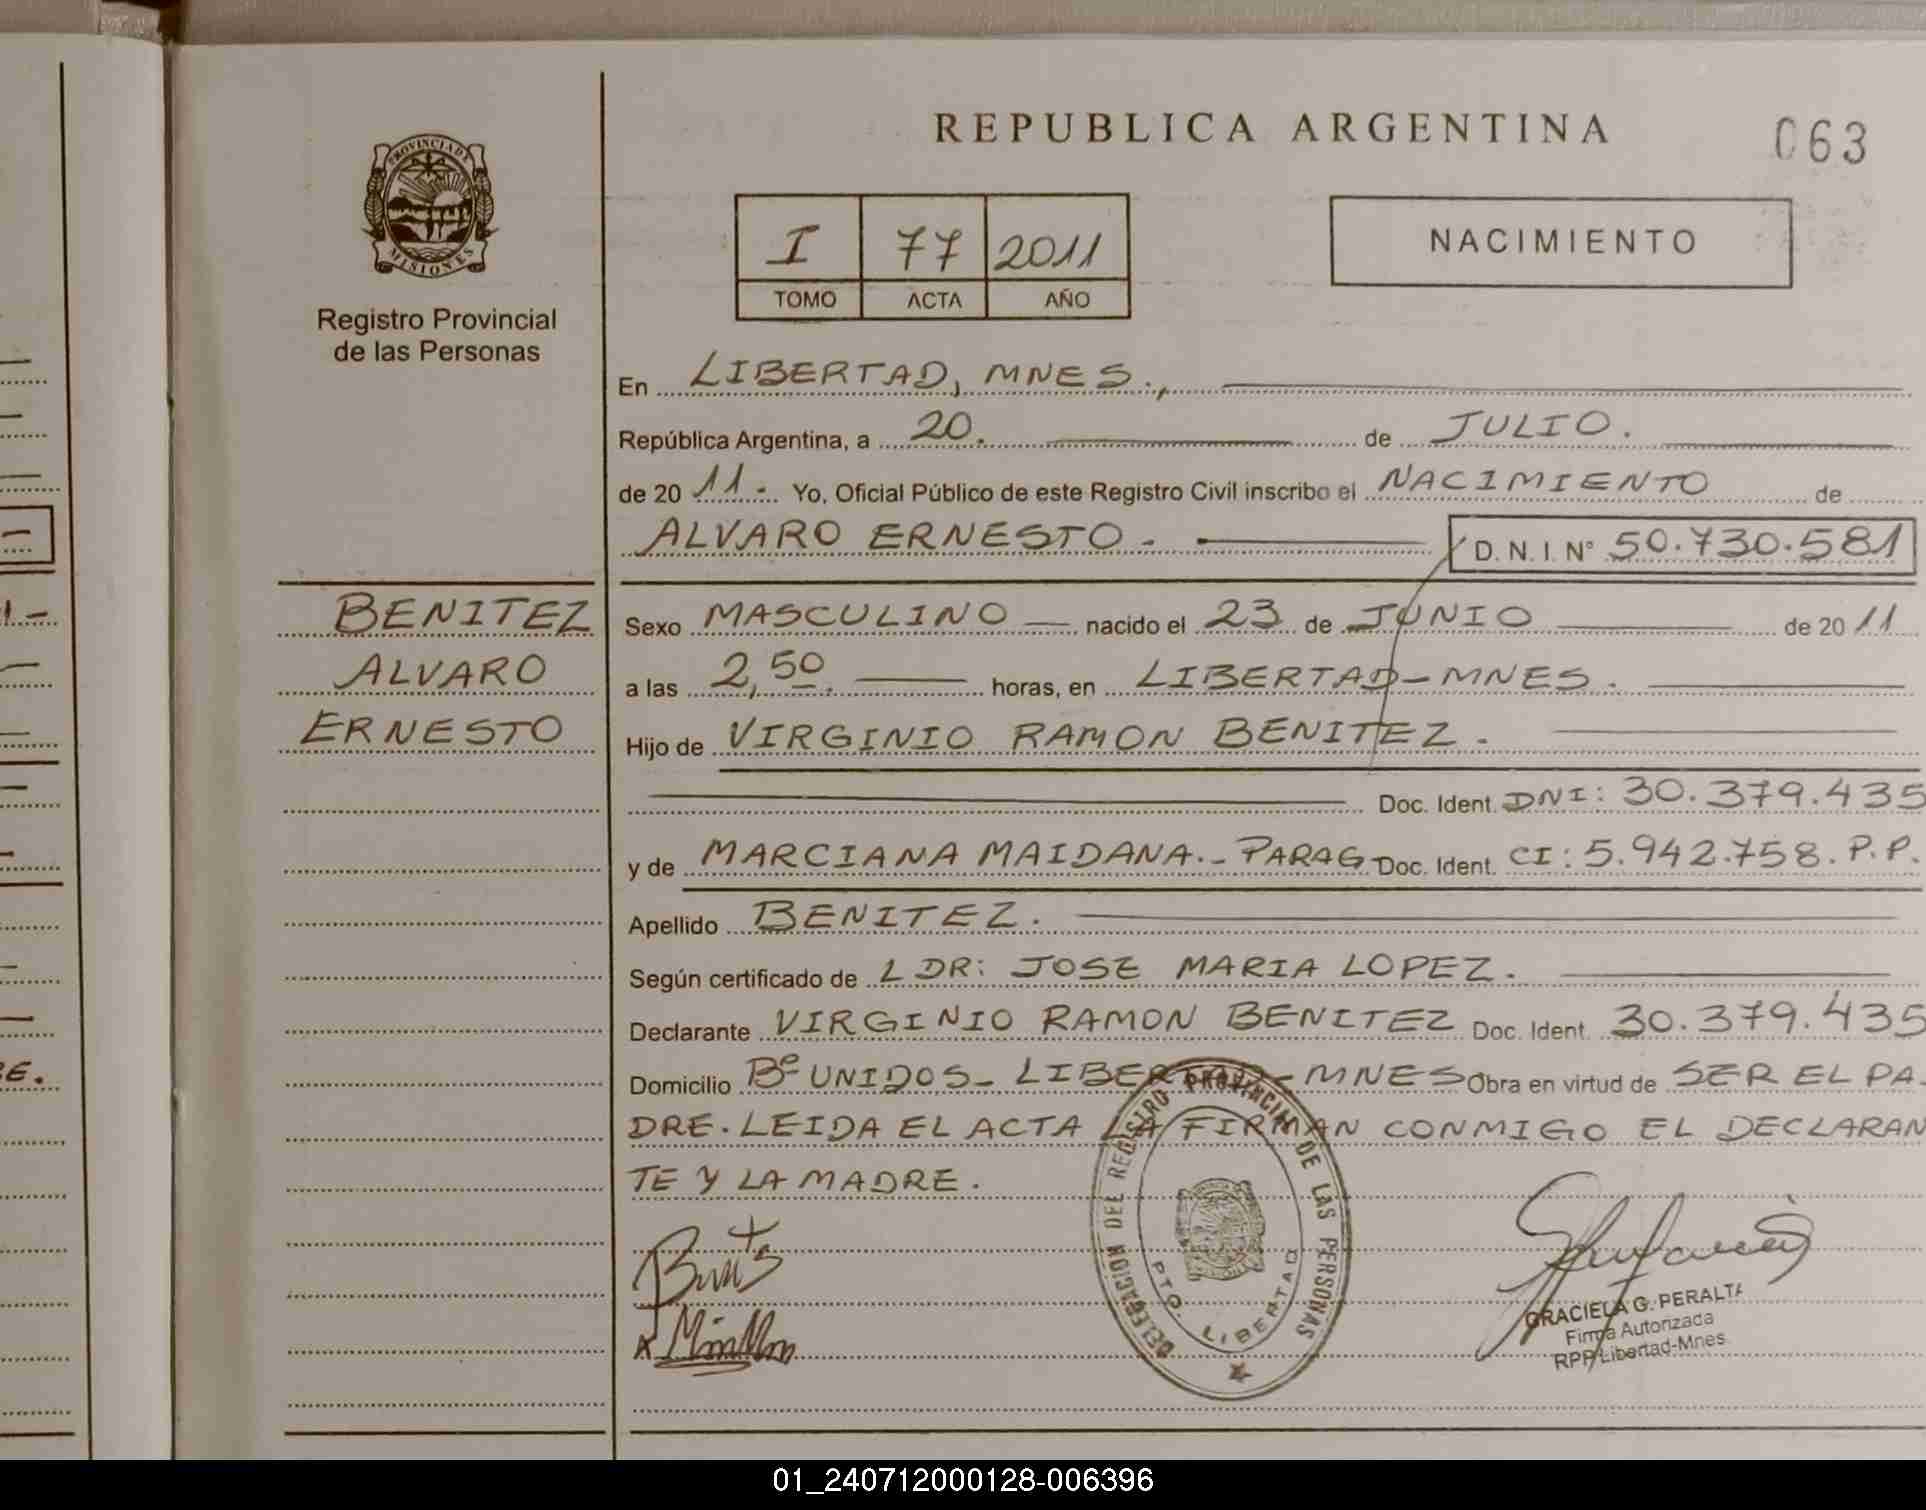 REPUBLICA ARGENTINA
063
PROVINCIA DE
MISIONES
Registro Provincial
de las Personas
I 77 2011
TOMO ACTA AÑO
NACIMIENTO
En LIBERTAD, MNES.,
República Argentina, a 20. de JULIO.
de 20 11.- Yo, Oficial Público de este Registro Civil inscribo el NACIMIENTO de
ALVARO ERNESTO. D. N. I. N° 50.730.581
BENITEZ
ALVARO
ERNESTO
Sexo MASCULINO nacido el 23 de JUNIO de 20 11
a las 2,50. horas, en LIBERTAD-MNES.
Hijo de VIRGINIO RAMON BENITEZ.
Doc. Ident. DNI: 30.379.435
y de MARCIANA MAIDANA.- PARAG- Doc. Ident. CI: 5.942.758. P.P.
Apellido BENITEZ.
Según certificado de L DR: JOSE MARIA LOPEZ.
Declarante VIRGINIO RAMON BENITEZ Doc. Ident. 30.379.435
Domicilio B° UNIDOS- LIBERTAD-MNES Obra en virtud de SER EL PA-
DRE. LEIDA EL ACTA LA FIRMAN CONMIGO EL DECLARAN
TE Y LA MADRE.
DELEGACION DEL REGISTRO PROVINCIAL DE LAS PERSONAS
PTO. LIBERTAD
GRACIELA G. PERALTA
Firma Autorizada
RPP Libertad-Mnes.
01_240712000128-006396